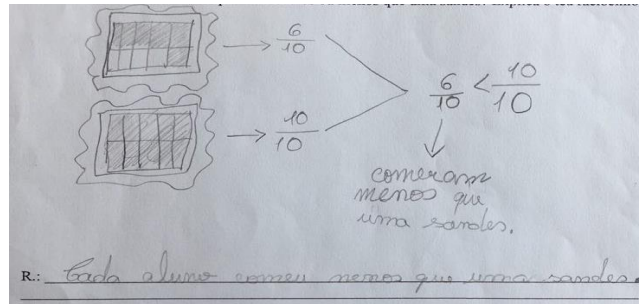 6/10
10/10
6/10 < 10/10
comeram
menos que
uma sandes.
R.: Cada aluno comeu menos que uma sandes.